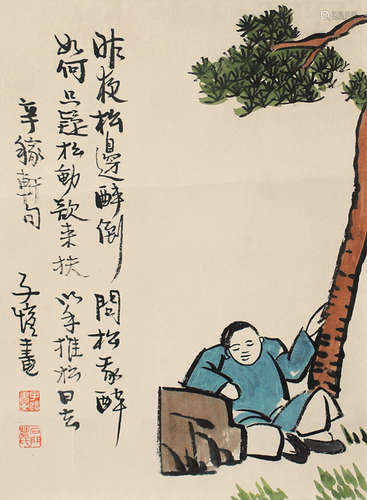 昨夜松邊醉倒 問松我醉
如何只疑松動欲来扶 以手推松曰去
辛稼軒句 子愷畫